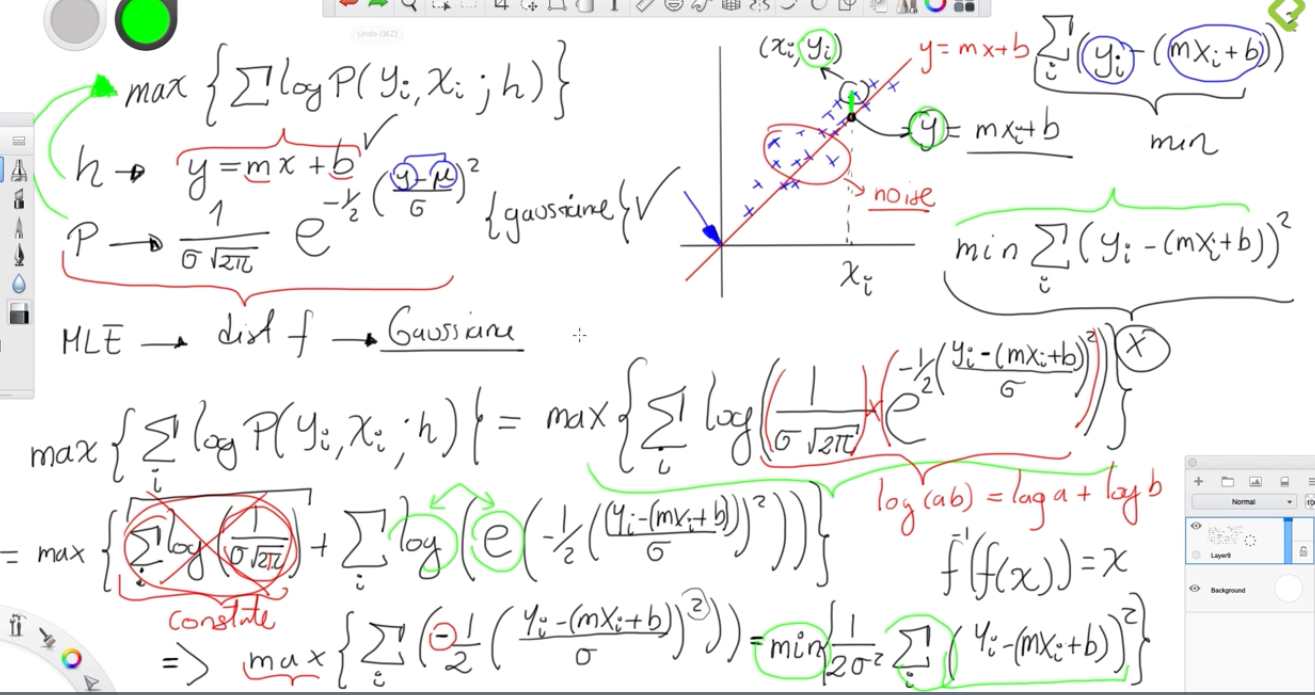 Undo (⌘Z)
max { ∑ log P( yᵢ, xᵢ ; h) }
h → y = mx + b ✓
P → 1/(σ√2π) e^(-1/2 ((y-μ)/σ)²) {gaussiane} ✓
MLE → dist f → Gaussiane
(xᵢ, yᵢ)
y = mx+b
y = mxᵢ+b
noise
xᵢ
∑ᵢ (yᵢ - (mxᵢ+b))²
min
min ∑ᵢ (yᵢ - (mxᵢ+b))²
max { ∑ᵢ log P( yᵢ, xᵢ ; h) } = max { ∑ᵢ log( (1/(σ√2π)) × (e^(-1/2 ((yᵢ-(mxᵢ+b))/σ)²)) ) } X
log(ab) = log a + log b
= max { ∑ᵢ log(1/(σ√2π)) + ∑ᵢ log( e(-1/2 ((yᵢ-(mxᵢ+b))/σ)²))) }
f⁻¹(f(x)) = x
constate
=> max { ∑ᵢ (-1/2 ((yᵢ-(mxᵢ+b))/σ)²)) = min{ 1/2σ² ∑ᵢ (yᵢ-(mxᵢ+b))² }
Normal
Layer9
Background